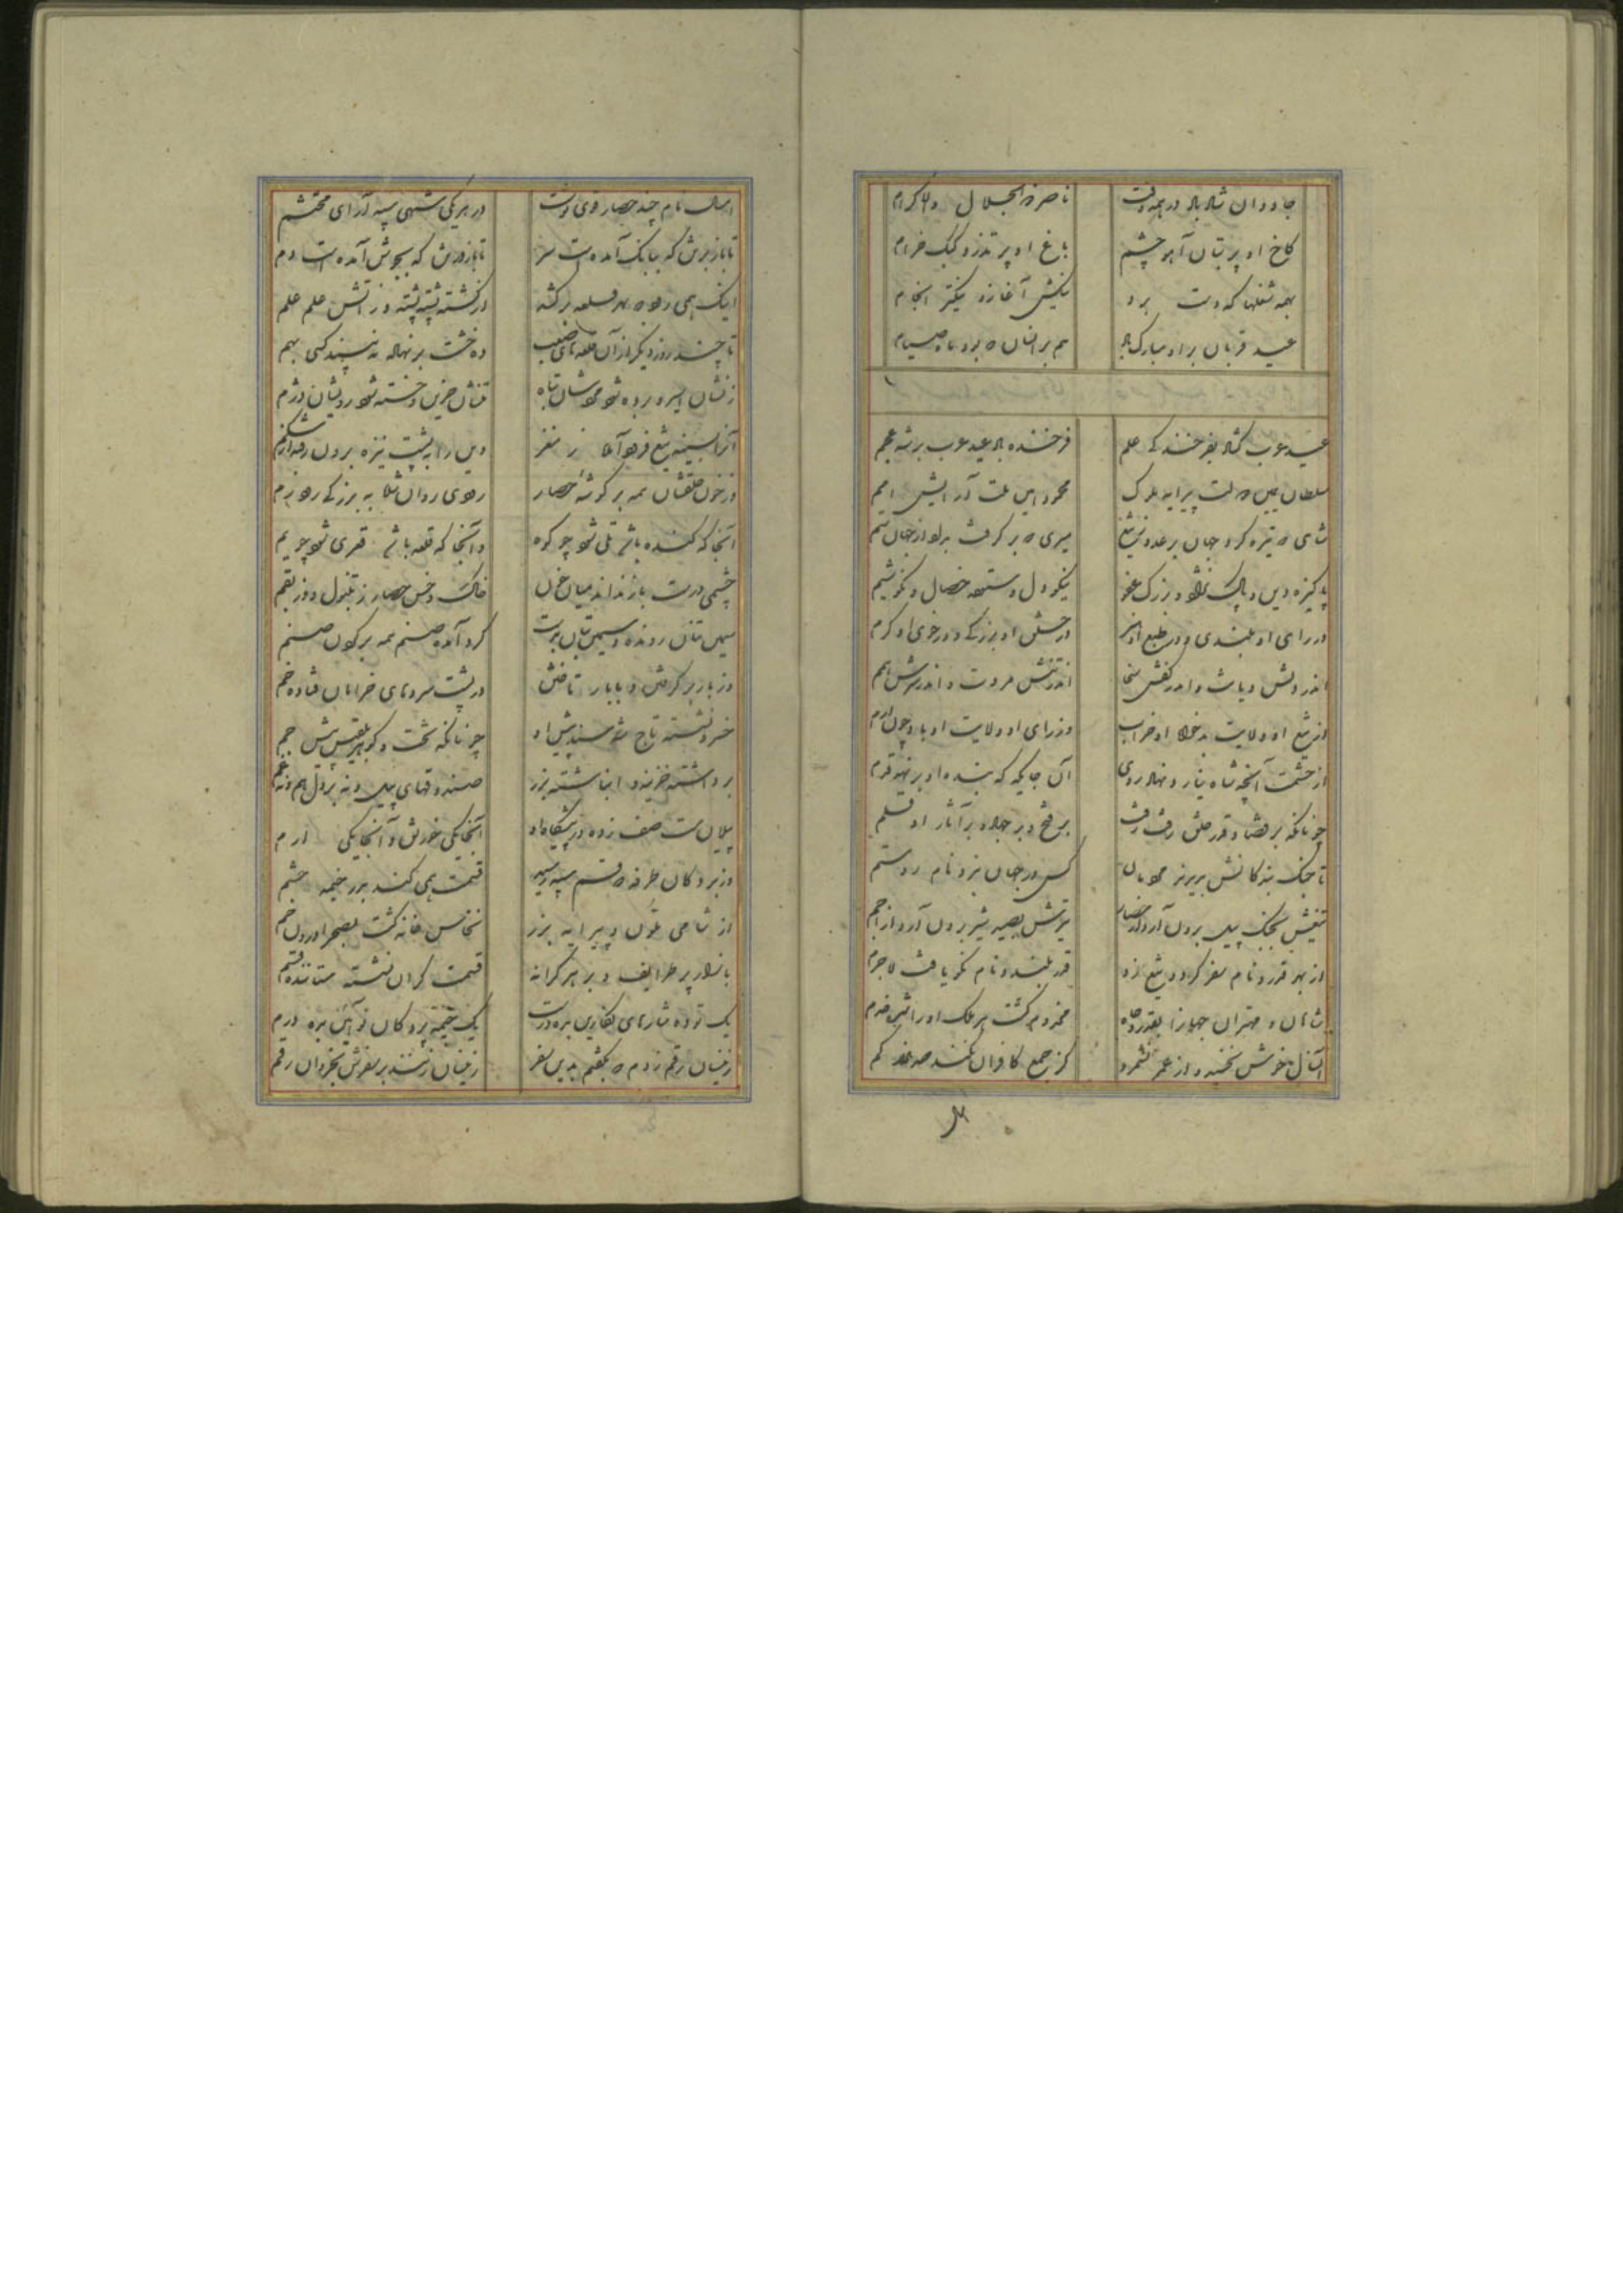 جاودان شاد باد در همه وقت ناصرش ذو الجلال والاکرام
کاخ او پر بتان آهو چشم باغ او پر تذرو کبک خرام
بهمه شغلها که دست برد نیکش آغاز و نیکتر انجام
عید قربان براو مبارک باد هم بر انسان که بود ماه صیام
عید عرب گشاد بفرخندگی علم فرخنده باد عید عرب بر شه عجم
سلطان یمین دولت پیرایه ملوک محمود امین ملت آرایش امم
شاهی که تیره کرد جهان بر عدو بتیغ میری که بر گرفت بداد از جهان ستم
پاکیزه دین و پاک نژاد و بزرگ عفو نیکو دل و ستوده خصال و نکو شیم
در رای او بلندی و در طبع او هنر در خشم او بزرگی و در خوی او کرم
اندر دلش دیانت و اندر کفش سخا اندر تنش مروت و اندر سرش همم
از تیغ او ولایت بدخواه او خراب وز رای او ولایت او باد چون ارم
از حشمت آنچه شاه نیارد نهاد روی آن جایگه که بنده او بر نهد قدم
چونانکه بر قضا و قدر خلق رفت رفت بر فتح و بر جهاد بر آثار او قلم
تا جنگ بندگانش بدیدند مردمان کس در جهان نبرد نام روستم
تیغش بجنگ پیل برون آرد از حصار تیرش بصید شیر برون آرد از اجم
از بهر قدر و نام سفر کرد و تیغ زد قدر بلند و نام نکو یافت لاجرم
شاهان و مهتران جهانرا بقدر و جاه مخدوم گشت هر ملک او را شدی خدم
آنسال خوش نخسبد و از عمر نشمرد کز جمع کافران نکند صد هزار کم
امسال نام چند حصار قوی نوشت در هر یکی شهی سپه آرای محتشم
تا باز برش که ببانگ آمده است سر تا باز ورش که بجوش آمده است دم
اینک همی رود که بهر قلعه بر کند از کشته پشته پشته و ز آتش علم علم
تا چند روز دیگر از آن قلعه های صعب ده خشت بر نهاده نه بیند کسی بهم
زنشان اسیر و برده شود مردشان تباه تنشان حزین و خسته شود رویشان دژم
آنرا بسینه تیغ فرود آید ز مغز وین را به پشت نیزه برون رفته از شکم
وز خون حلقشان همه بر گوشه حصار رودی روان شده به بزرگی رود زم
آنجا که کنده باشد تلی شود چو کوه و آنجا که قلعه باشد قعری شود چو یم
چشمی درست باز نداند میان خون خاک و خس حصار ز تنبول وز بقم
سیمین بتان رونده و سیمین بتان بدست گرد آمده صنم همه بر گردن صنم
وز بار بر گرفتن و با بار تافتن در پشت سروهای خرامان فتاده خم
خسرو نشسته تاج شه هند پیش او چونانکه تخت و گوهر بلقیس پیش جم
برداشته خزینه و انباشته بزر صندوقهای پیل و نه در دل هم و نه غم
پیلان مست صف زده در پیشگاه او آنجا یکی خورنق و آنجا یکی ارم
وز بردگان طرفه که قسم سپه رسید قیمت همی کنند بدر خیمه حشم
از شاهی ملون و پیرایه بزر نخاس خانه گشت بصحرا درون خیم
بازار پر طرایف و بر هر کرانه قیمت گران نشسته ستاننده قسم
یک توده شارهای نگارین بده درست یک خیمه بردگان نو آئین بده درم
زینسان رقم زدم که بگفتم بدین سفر زینسان زنند بر سفرش بخردان رقم